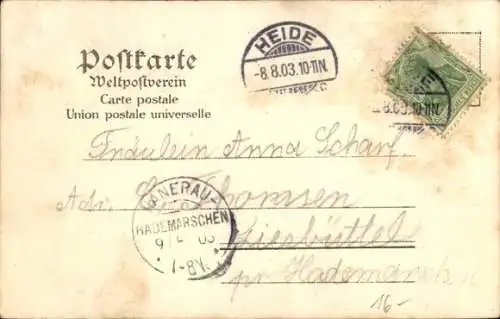 Postkarte
Weltpostverein
Carte postale
Union postale universelle
HEIDE
-8.8.03.10-11N.
8.03.10-11N.
Fräulein Anna Scharf
Adr. C. Thomsen
Liesbüttel
pr Hademarschen
HANERAU-
HADEMARSCHEN
9 03
7-8V.
16-